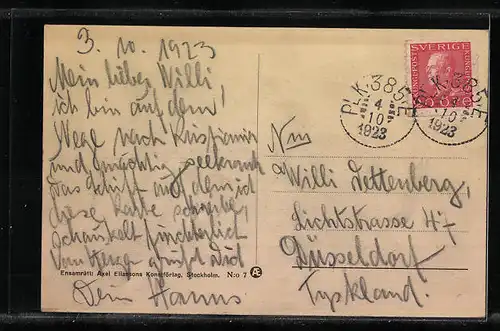 3. 10. 1923
Mein lieber Willi
ich bin auf dem
Wege nach Kristiania
und mächtig seekrank
Das Schiff auf dem ich
diese Karte schreibe,
schaukelt fürchterlich
Von Herzen grüßt Dich
Dein Hanns
Ensamrätt: Axel Eliassons Konstförlag, Stockholm. N:o 7 Æ
SVERIGE
PLK 385 E
4
10
1923
PLK 385 E
4
10
1923
Willi Dettenberg,
Lichtstrasse 47
Düsseldorf
Tyskland.